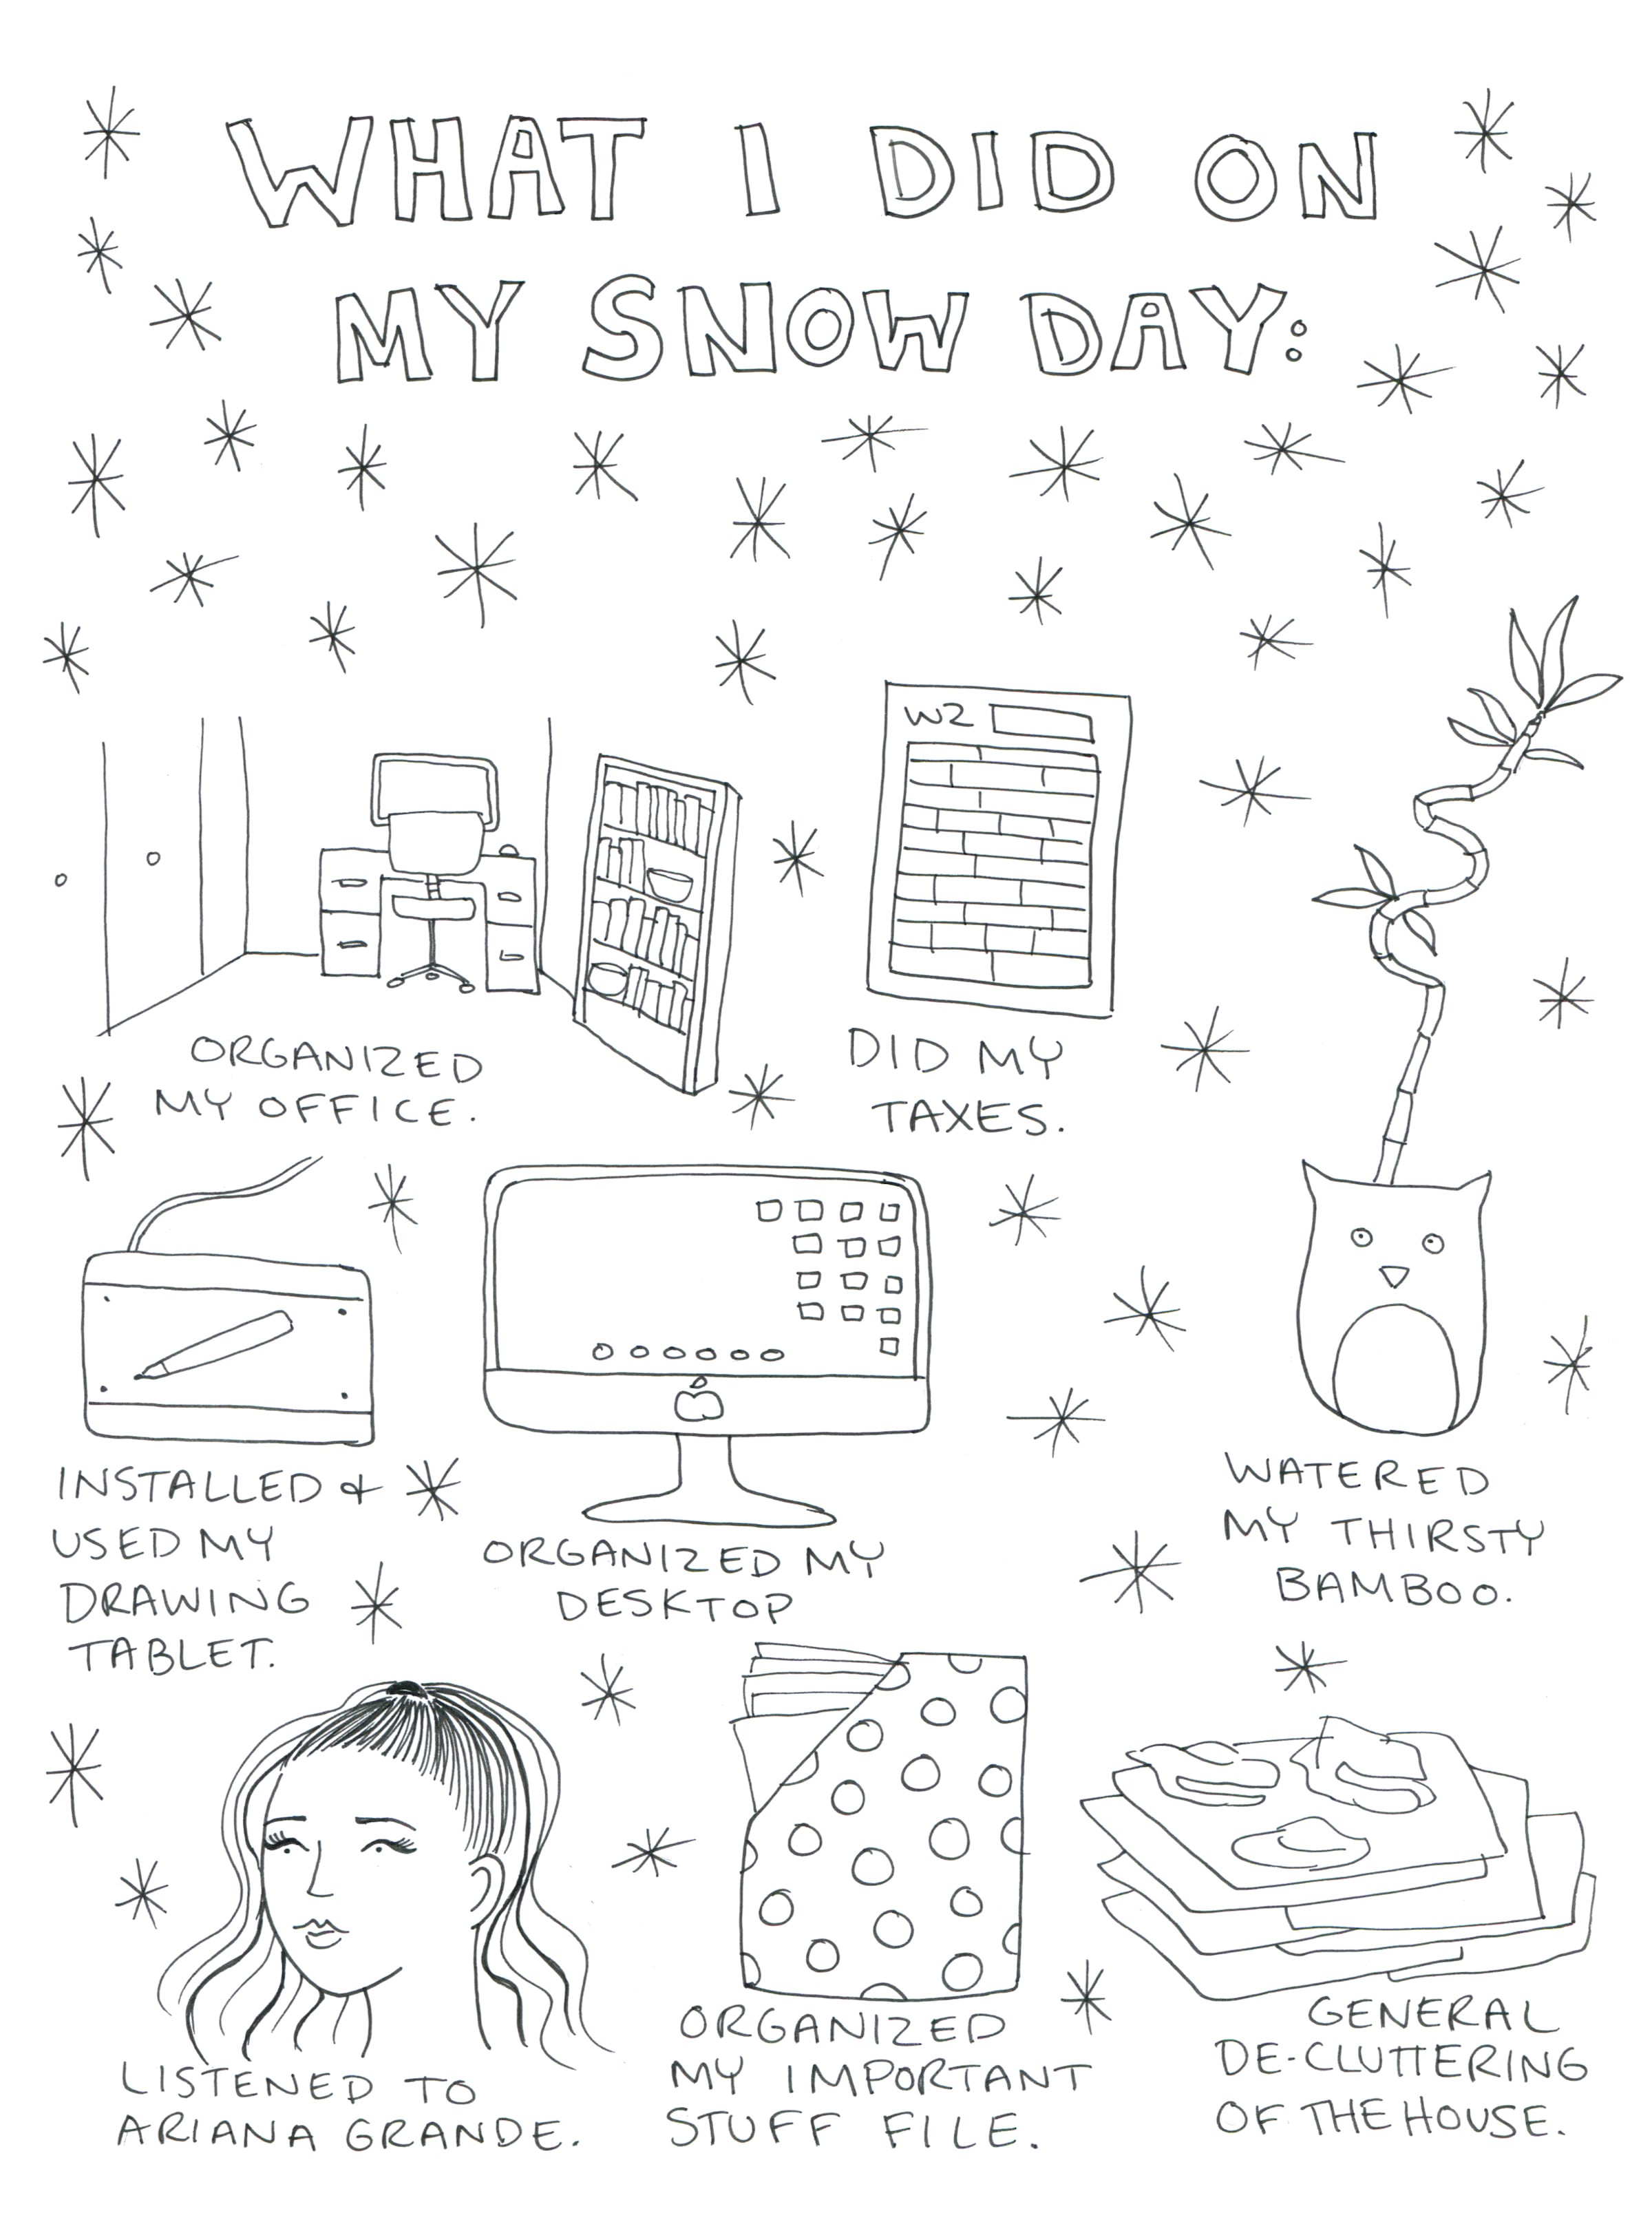 WHAT I DID ON
MY SNOW DAY:
W2
ORGANIZED
MY OFFICE.
DID MY
TAXES.
INSTALLED &
USED MY
DRAWING
TABLET.
ORGANIZED MY
DESKTOP
WATERED
MY THIRSTY
BAMBOO.
LISTENED TO
ARIANA GRANDE.
ORGANIZED
MY IMPORTANT
STUFF FILE.
GENERAL
DE-CLUTTERING
OF THE HOUSE.